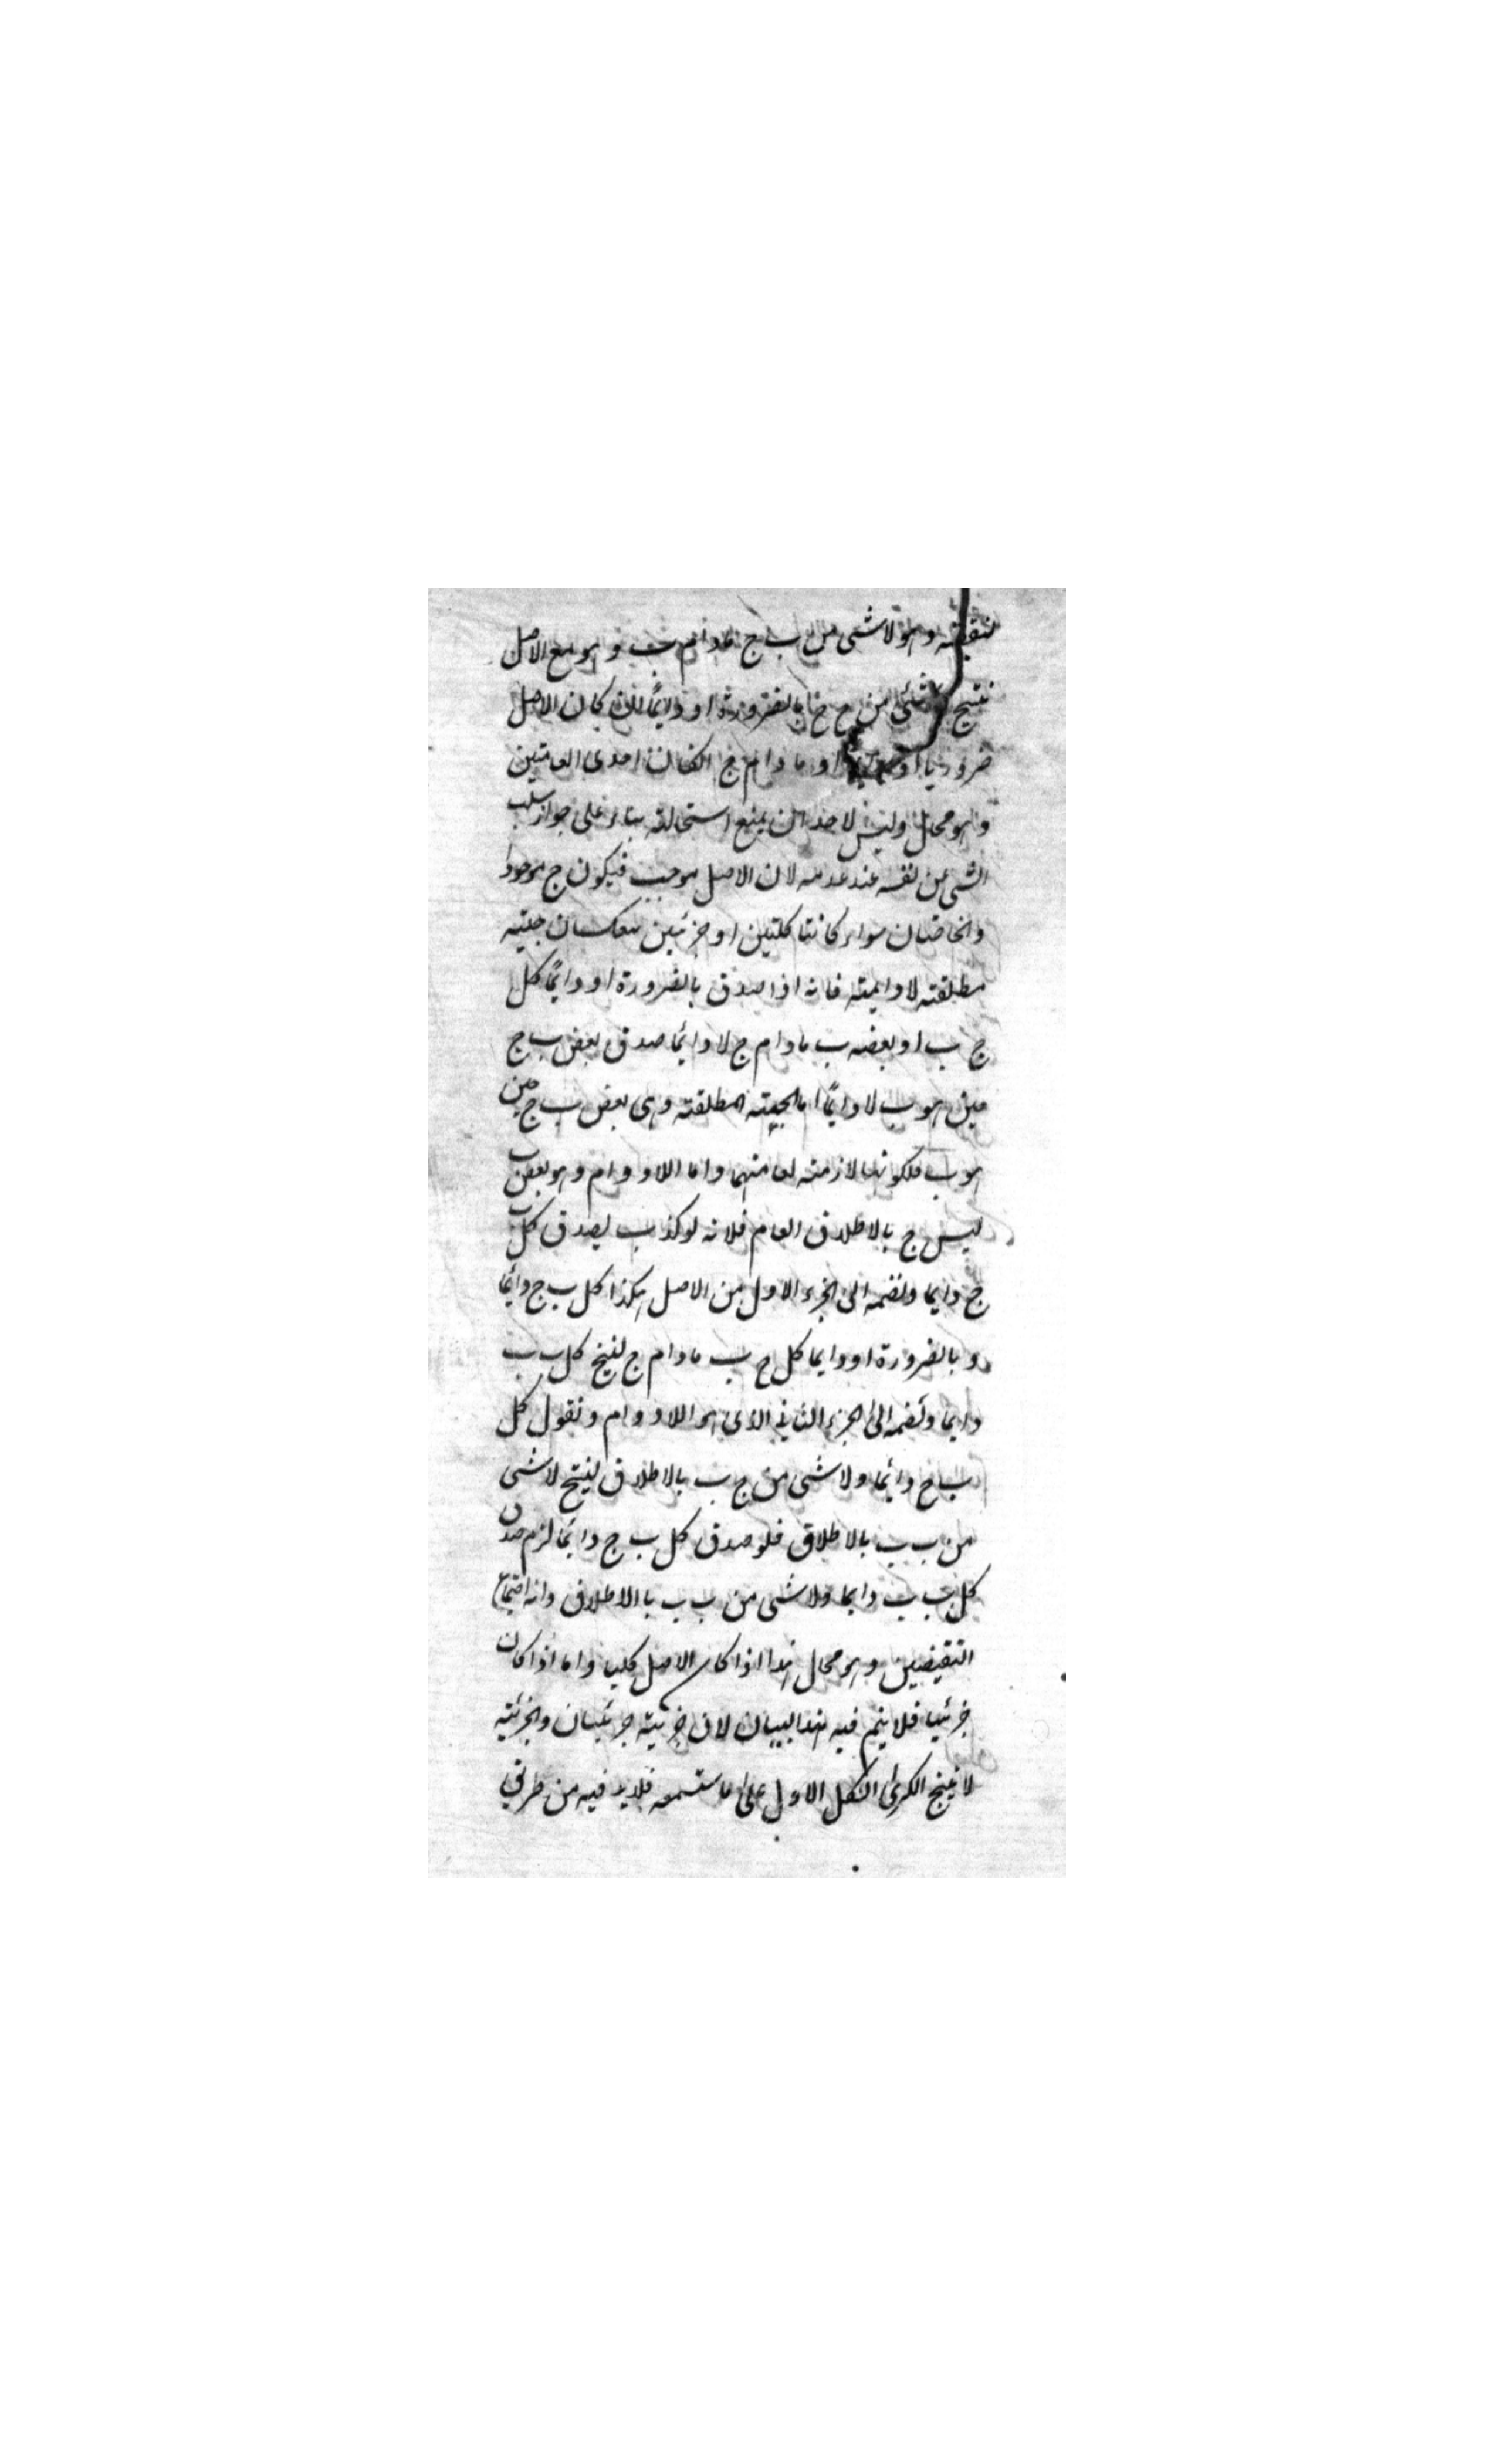 لنقيضه وهو لاشى من ب ج مادام ب وهو مع الاصل
ينتج لاشئ من ج ج بالضرورة او دايمًا ان كان الاصل
ضروريا او او مادام ج انكان احدى العامتين
وهو محال وليس لاحد ان يمنع استحالته بناء على جواز سلب
الشى عن نفسه عند عدمه لان الاصل موجب فيكون ج موجودا
والخاصتان سواء كانتا كليتين او جزئيتين تنعكسان حينيه
مطلقته لادايمته فانه اذا صدق بالضرورة او دايمًا كل
ج ب او بعضه ب مادام ج لا دائما صدق بعض ب ج
حين هو ب لا دايمًا اما الحينيته المطلقته وهى بعض ب ج حين
هو ب فلكونها لازمته لعامتهما واما اللادوام وهو بعض ب
ليس ج بالاطلاق العام فلانه لو كذب لصدق كل ب
ج دايما ونضمه الى الجزء الاول من الاصل هكذا كل ب ج دائما
و بالضرورة او دايما كل ج ب مادام ج لينتج كل ب ب
دايما ونضمه الى الجزء الثانى الذى هو اللادوام ونقول كل
ب ج دائما ولاشى من ج ب بالاطلاق لينتج لاشى
من ب ب بالاطلاق فلو صدق كل ب ج دائما لزم صدق
كل ب ب دايما ولاشى من ب ب بالاطلاق وانه اجتماع
النقيضين وهو محال هذا اذا كان الاصل كليا واما اذا كان
جزئيا فلا يتم فيه هذا البيان لان جزئيته جزئيتان والجزئيته
لا تنتج الكبرى الشكل الاول على ما ستسمعه فلابد فيه من طريق